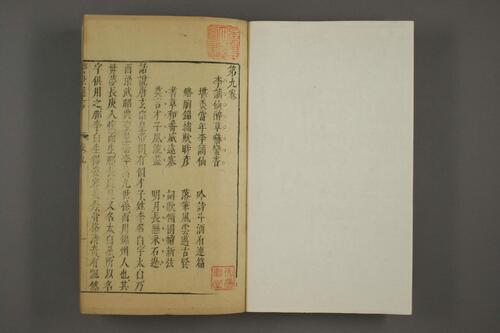 第九卷
李謫仙醉草嚇蠻書
堪羨當年李謫仙 吟詩斗酒有連篇
蟠胸錦繡欺時彥 落筆風雲邁古賢
書草和番威遠塞 詞歌傾國媚新弦
莫言才子風流盡 明月長懸采石邊
話說唐玄宗皇帝朝有個才子姓李名白字太白乃
西梁武昭興聖皇帝李暠九世孫西川錦州人也其
母夢長庚入懷而生那長庚星又名太白星所以名
字俱用之那李白生得姿容美秀骨格清奇有飄然